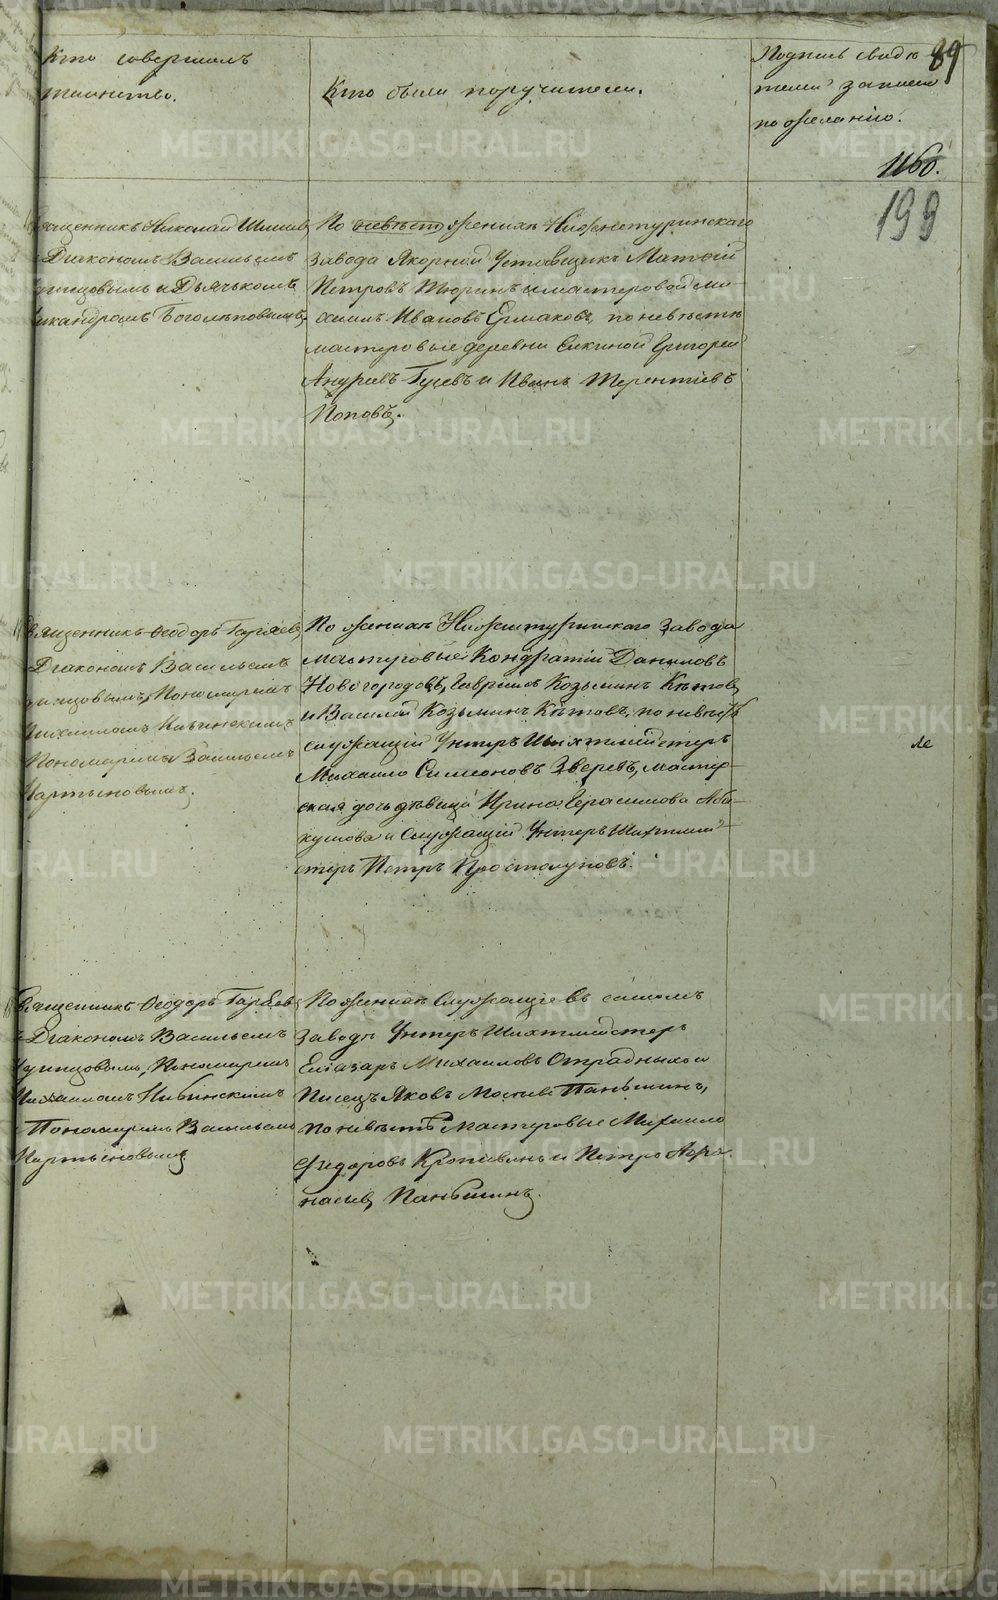 Кто совершалъ
таинство.
Кто были поручители.
Подпись свидѣ-
телей записи
по желанію.
89
1160.
199
Священникъ Николай
Діакономъ Васильемъ
и Дьячькомъ
По невѣстѣ женихѣ Нижнетуринскаго
завода Якорной Уставщикъ Матѳій
Петровъ Тюринъ и мастеровой Ми-
хаилъ Ивановъ Ермаковъ, по невѣстѣ
мастеровые деревни Елкиной Григорей
Андреевъ Гусевъ и Иванъ Терентіевъ
Поповъ.
Священникъ Ѳеодоръ
Діакономъ Васильемъ
Пономаремъ
Михаиломъ
Пономаремъ Васильемъ
Мартыновымъ.
По женихѣ Нижнетуринскаго завода
мастеровые Кондратій Даниловъ
Новогородовъ, Гаврило Козьминъ Китовъ
и Василій Козьминъ Китовъ, по невѣстѣ
служащій Унтеръ Шихтмейстеръ
Михаило Симеоновъ Зверевъ, мастер-
ская дочь дѣвица Ирина Герасимова Аба-
кумова и Служащій Унтеръ Шихтмей-
стеръ Петръ Простолуповъ.
Священникъ Ѳеодоръ
Діакономъ Васильемъ
Пономаремъ
Михаиломъ
Пономаремъ Васильемъ
Мартыновымъ
По женихѣ Служащіе въ семъ
заводѣ Унтеръ Шихтмейстеръ
Елиазаръ Михаиловъ Отрадныхъ и
Писецъ Яковъ Паньшинъ,
по невѣстѣ мастеровые Михаило
Федоровъ Кропивинъ и Петръ Аѳа-
насьевъ Паньшинъ.
METRIKI.GASO-URAL.RU